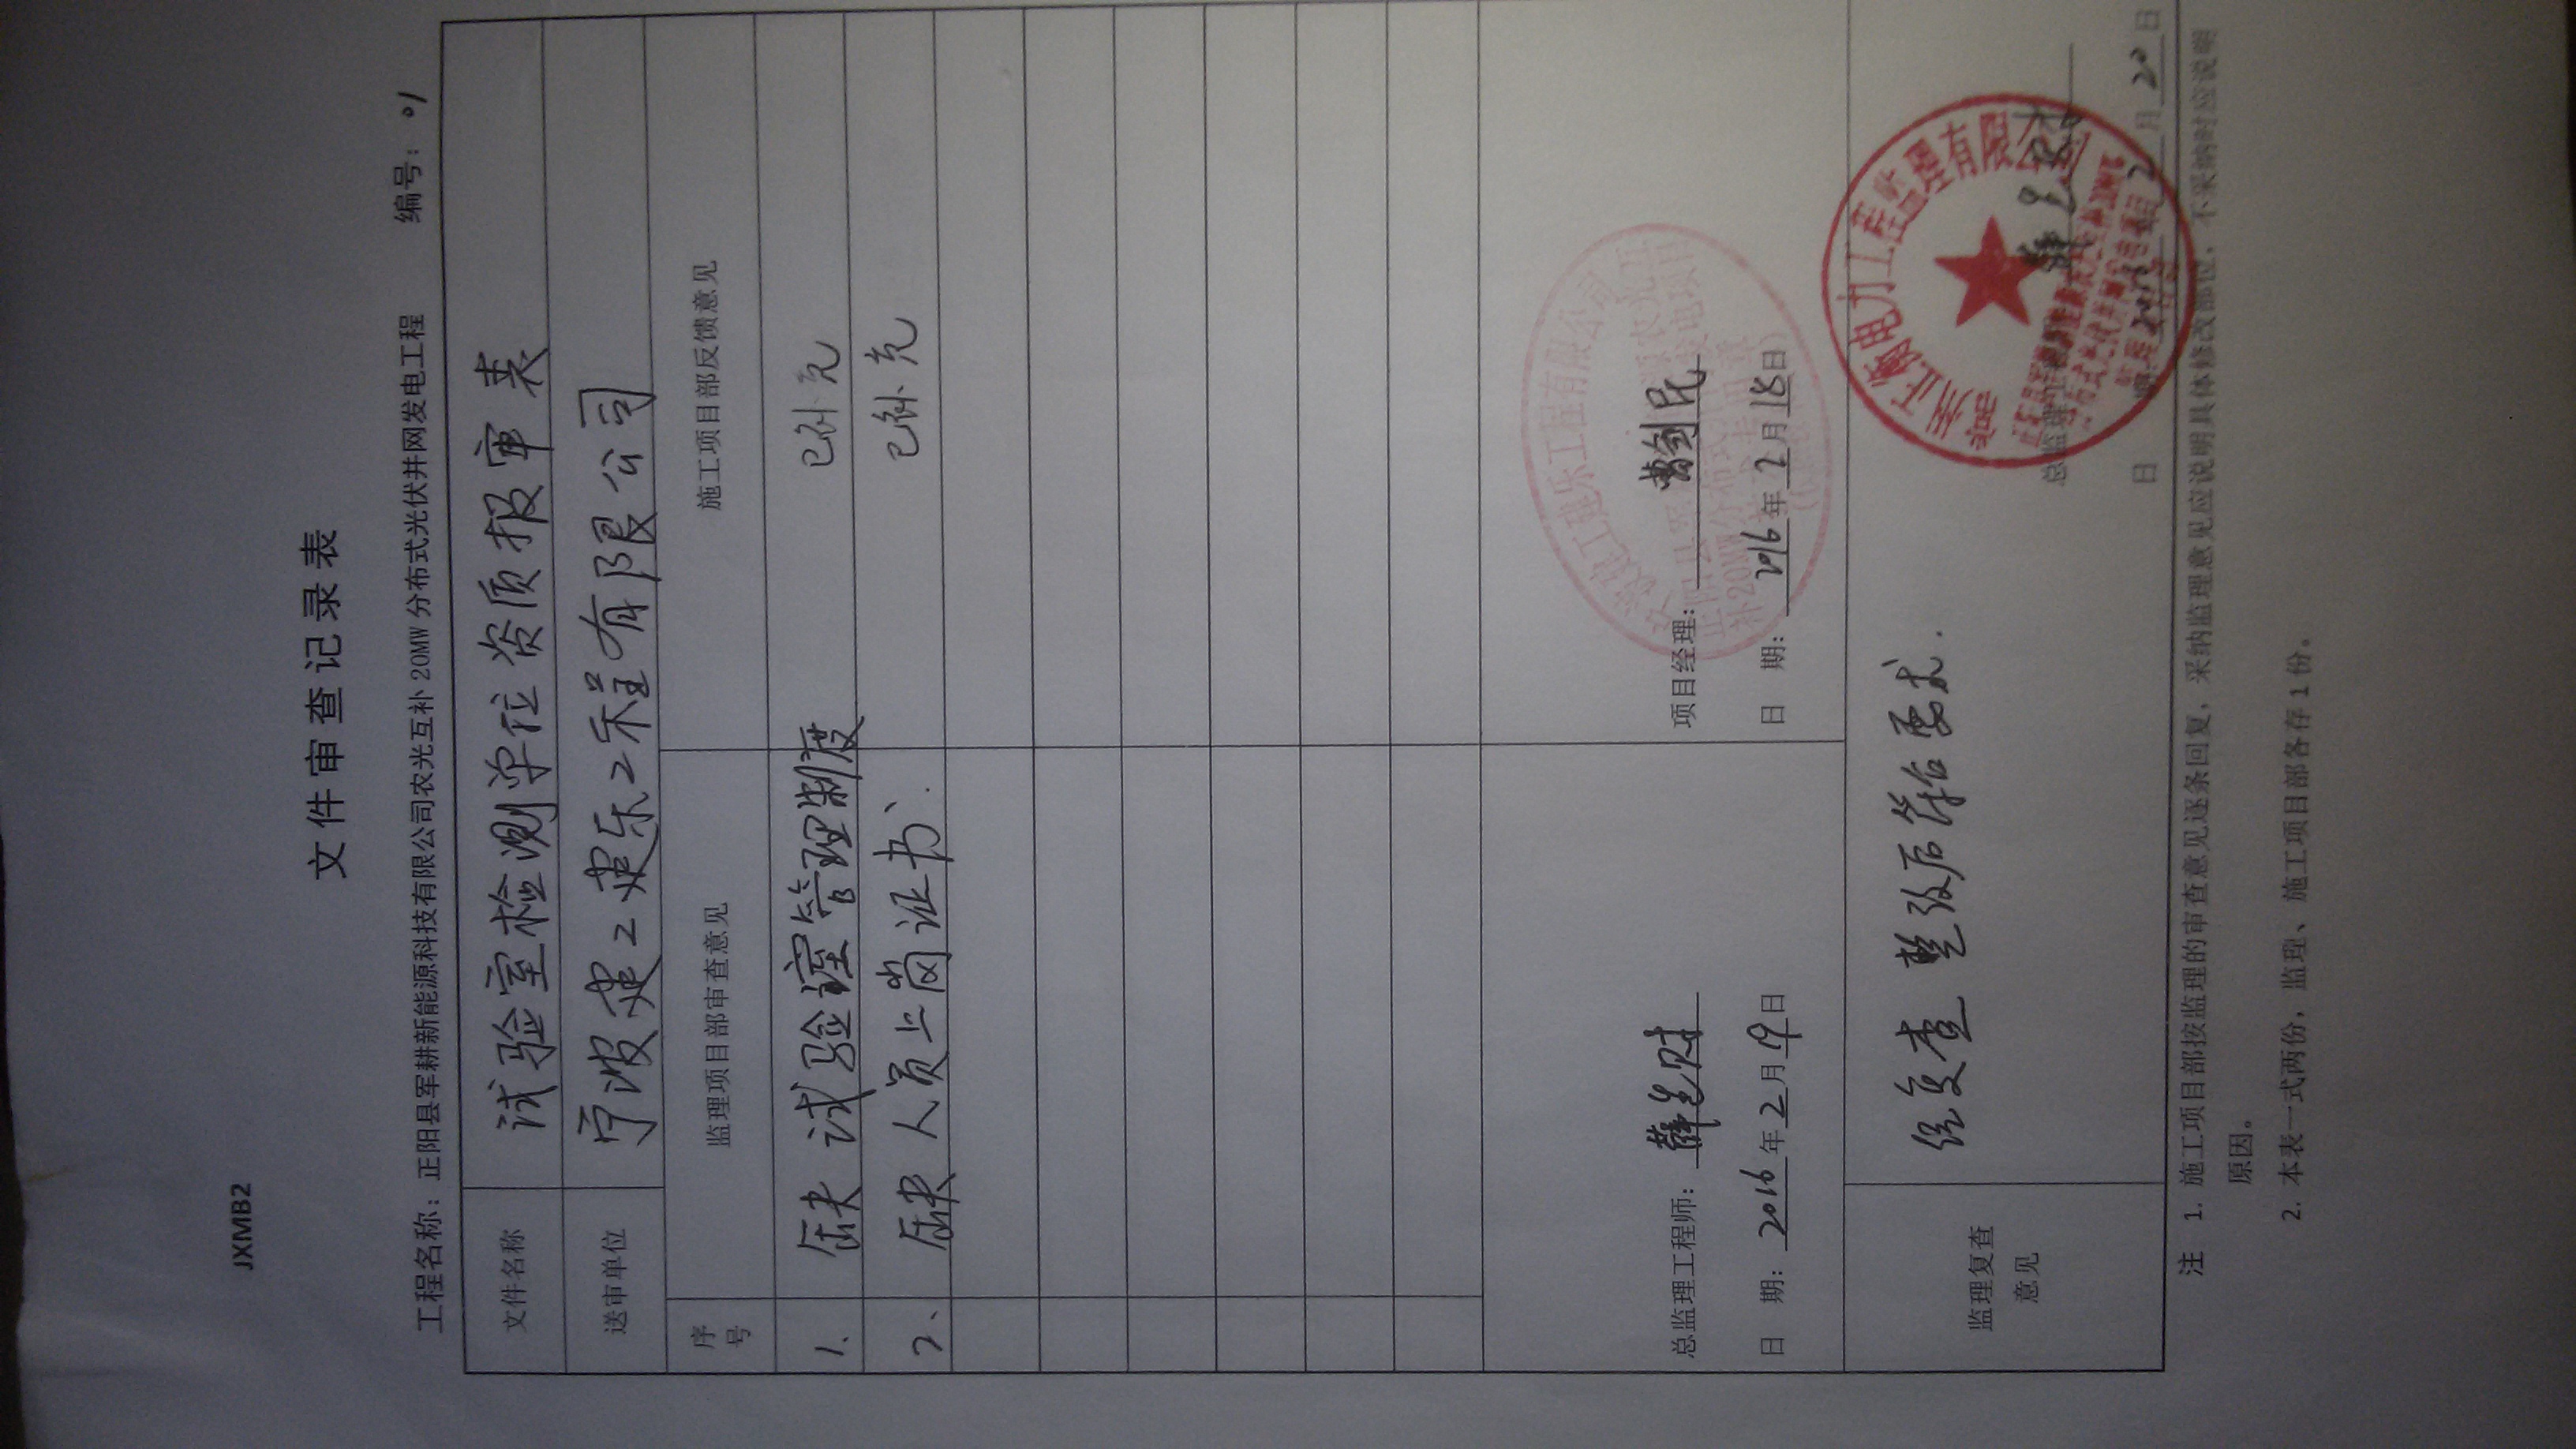 JXMB2
文件审查记录表
工程名称：正阳县军耕新能源科技有限公司农光互补20MW分布式光伏并网发电工程 编号：01
文件名称 试验室检测单位资质报审表
送审单位 宁波建工建乐工程有限公司
序号 监理项目部审查意见 施工项目部反馈意见
1. 缺试验室管理制度 已补充
2、 缺人员上岗证书. 已补充
总监理工程师： 项目经理：曹剑民
日 期：2016年2月19日 日 期：2016年2月18日
监理复查意见 经复查整改后符合要求.
电力工程监理有限公司
总监理工程师
日 期：2016年2月20日
注 1. 施工项目部按监理的审查意见逐条回复，采纳监理意见应说明具体修改部位，不采纳时应说明
原因。
2. 本表一式两份，监理、施工项目部各存1份。